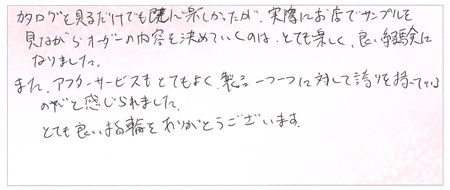 カタログを見るだけでも既に楽しかったが、実際にお店でサンプルを
見ながらオーダーの内容を決めていくのは、とても楽しく、良い経験に
なりました。
また、アフターサービスもとてもよく、製品一つ一つに対して誇りを持っている
のだと感じられました。
とても良い指輪をありがとうございます。